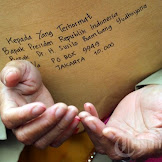 Kepada Yang Terhormat
Bapak Presiden Republik Indonesia
Bapak Dr. H Susilo Bambang Yudhoyono
PO BOX 9949
JAKARTA 10.000